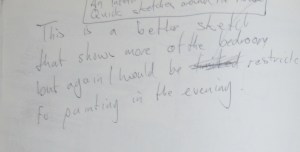 Quick sketch
This is a better sketch
that shows more of the bedroom
but again I would be restricted
to painting in the evening.